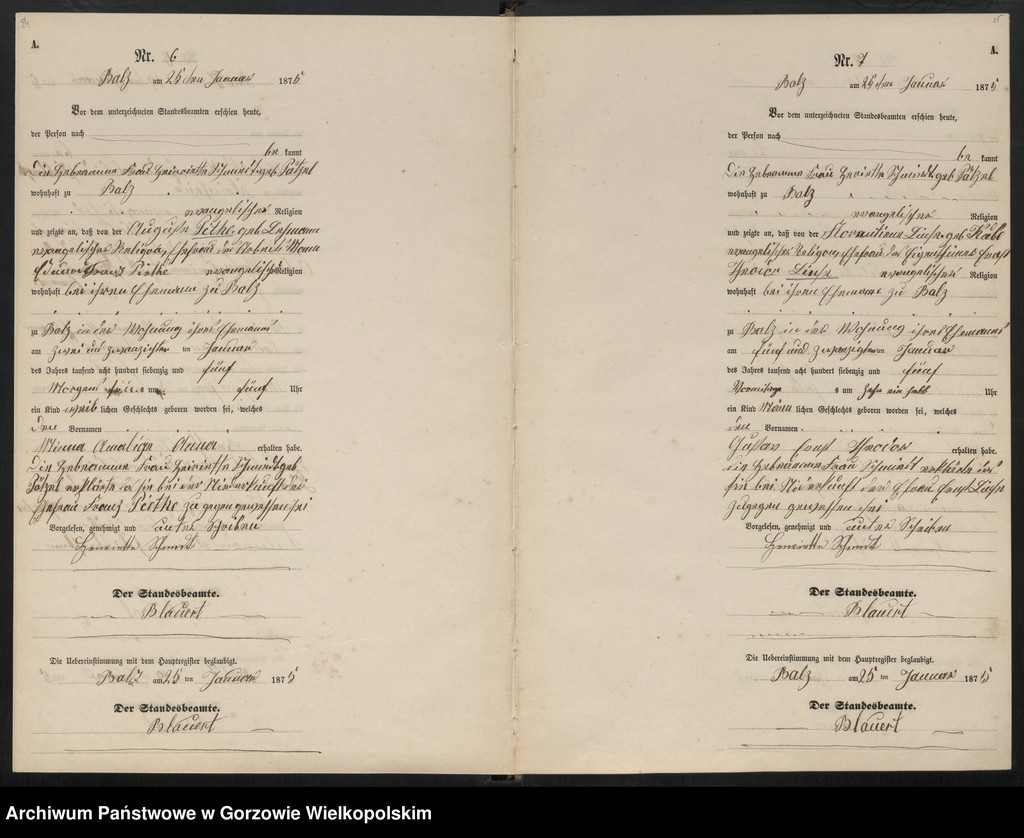 A.
Nr. 6
Balz am 25ten Januar 1875
Vor dem unterzeichneten Standesbeamten erschien heute,
der Person nach
be kannt
Die Hebeamme Frau Henriette Schmidt geb Pätzel
wohnhaft zu Balz
evangelischer Religion
und zeigte an, daß von der Auguste Piethe geb Lehmann
evangelischer Religion, Ehefrau des Arbeits Mann
Franz Piethe evangelischer Religion
wohnhaft bei ihren Ehemann zu Balz
zu Balz in der Wohnung ihres Ehemanns
am zwei und zwanzigsten ten Januar
des Jahres tausend acht hundert siebenzig und fünf
Morgens um fünf Uhr
ein Kind weib lichen Geschlechts geboren worden sei, welches
den Vornamen
Minna Amalige Anna erhalten habe.
Die Hebeamme Frau Henriette Schmidt geb
Pätzel erklärte da sie bei der Niederkunft der
Ehefrau Franz Piethe zu gegen gewessen sei
Vorgelesen, genehmigt und unter Schriben
Henriette Schmit
Der Standesbeamte.
Blauert
Die Uebereinstimmung mit dem Hauptregister beglaubigt.
Balz am 25 ten Januar 1875
Der Standesbeamte.
Blauert
A.
Nr. 7
Balz am 25ten Januar 1875
Vor dem unterzeichneten Standesbeamten erschien heute,
der Person nach
be kannt
Die Hebeamme Frau Henriette Schmidt geb Pätzel
wohnhaft zu Balz
evangelischer Religion
und zeigte an, daß von der geb
evangelischer Religion, Ehefrau des Eigenthümer Ernst
evangelischer Religion
wohnhaft bei ihren Ehemane zu Balz
zu Balz in der Wohnung ihres Ehemanns
am fünf und zwanzigten ten Januar
des Jahres tausend acht hundert siebenzig und fünf
Vormittags um Zehn ein halb Uhr
ein Kind Männ lichen Geschlechts geboren worden sei, welches
den Vornamen
Gustav Ernst Theodor erhalten habe.
die Hebeamme Frau Schmidt erklärte das
sie bei Niederkunft der Ehefrau Ernst
zugegen gewessen sei
Vorgelesen, genehmigt und unter Schriben
Henriette Schmit
Der Standesbeamte.
Blauert
Die Uebereinstimmung mit dem Hauptregister beglaubigt.
Balz am 25 ten Januar 1875
Der Standesbeamte.
Blauert
Archiwum Państwowe w Gorzowie Wielkopolskim